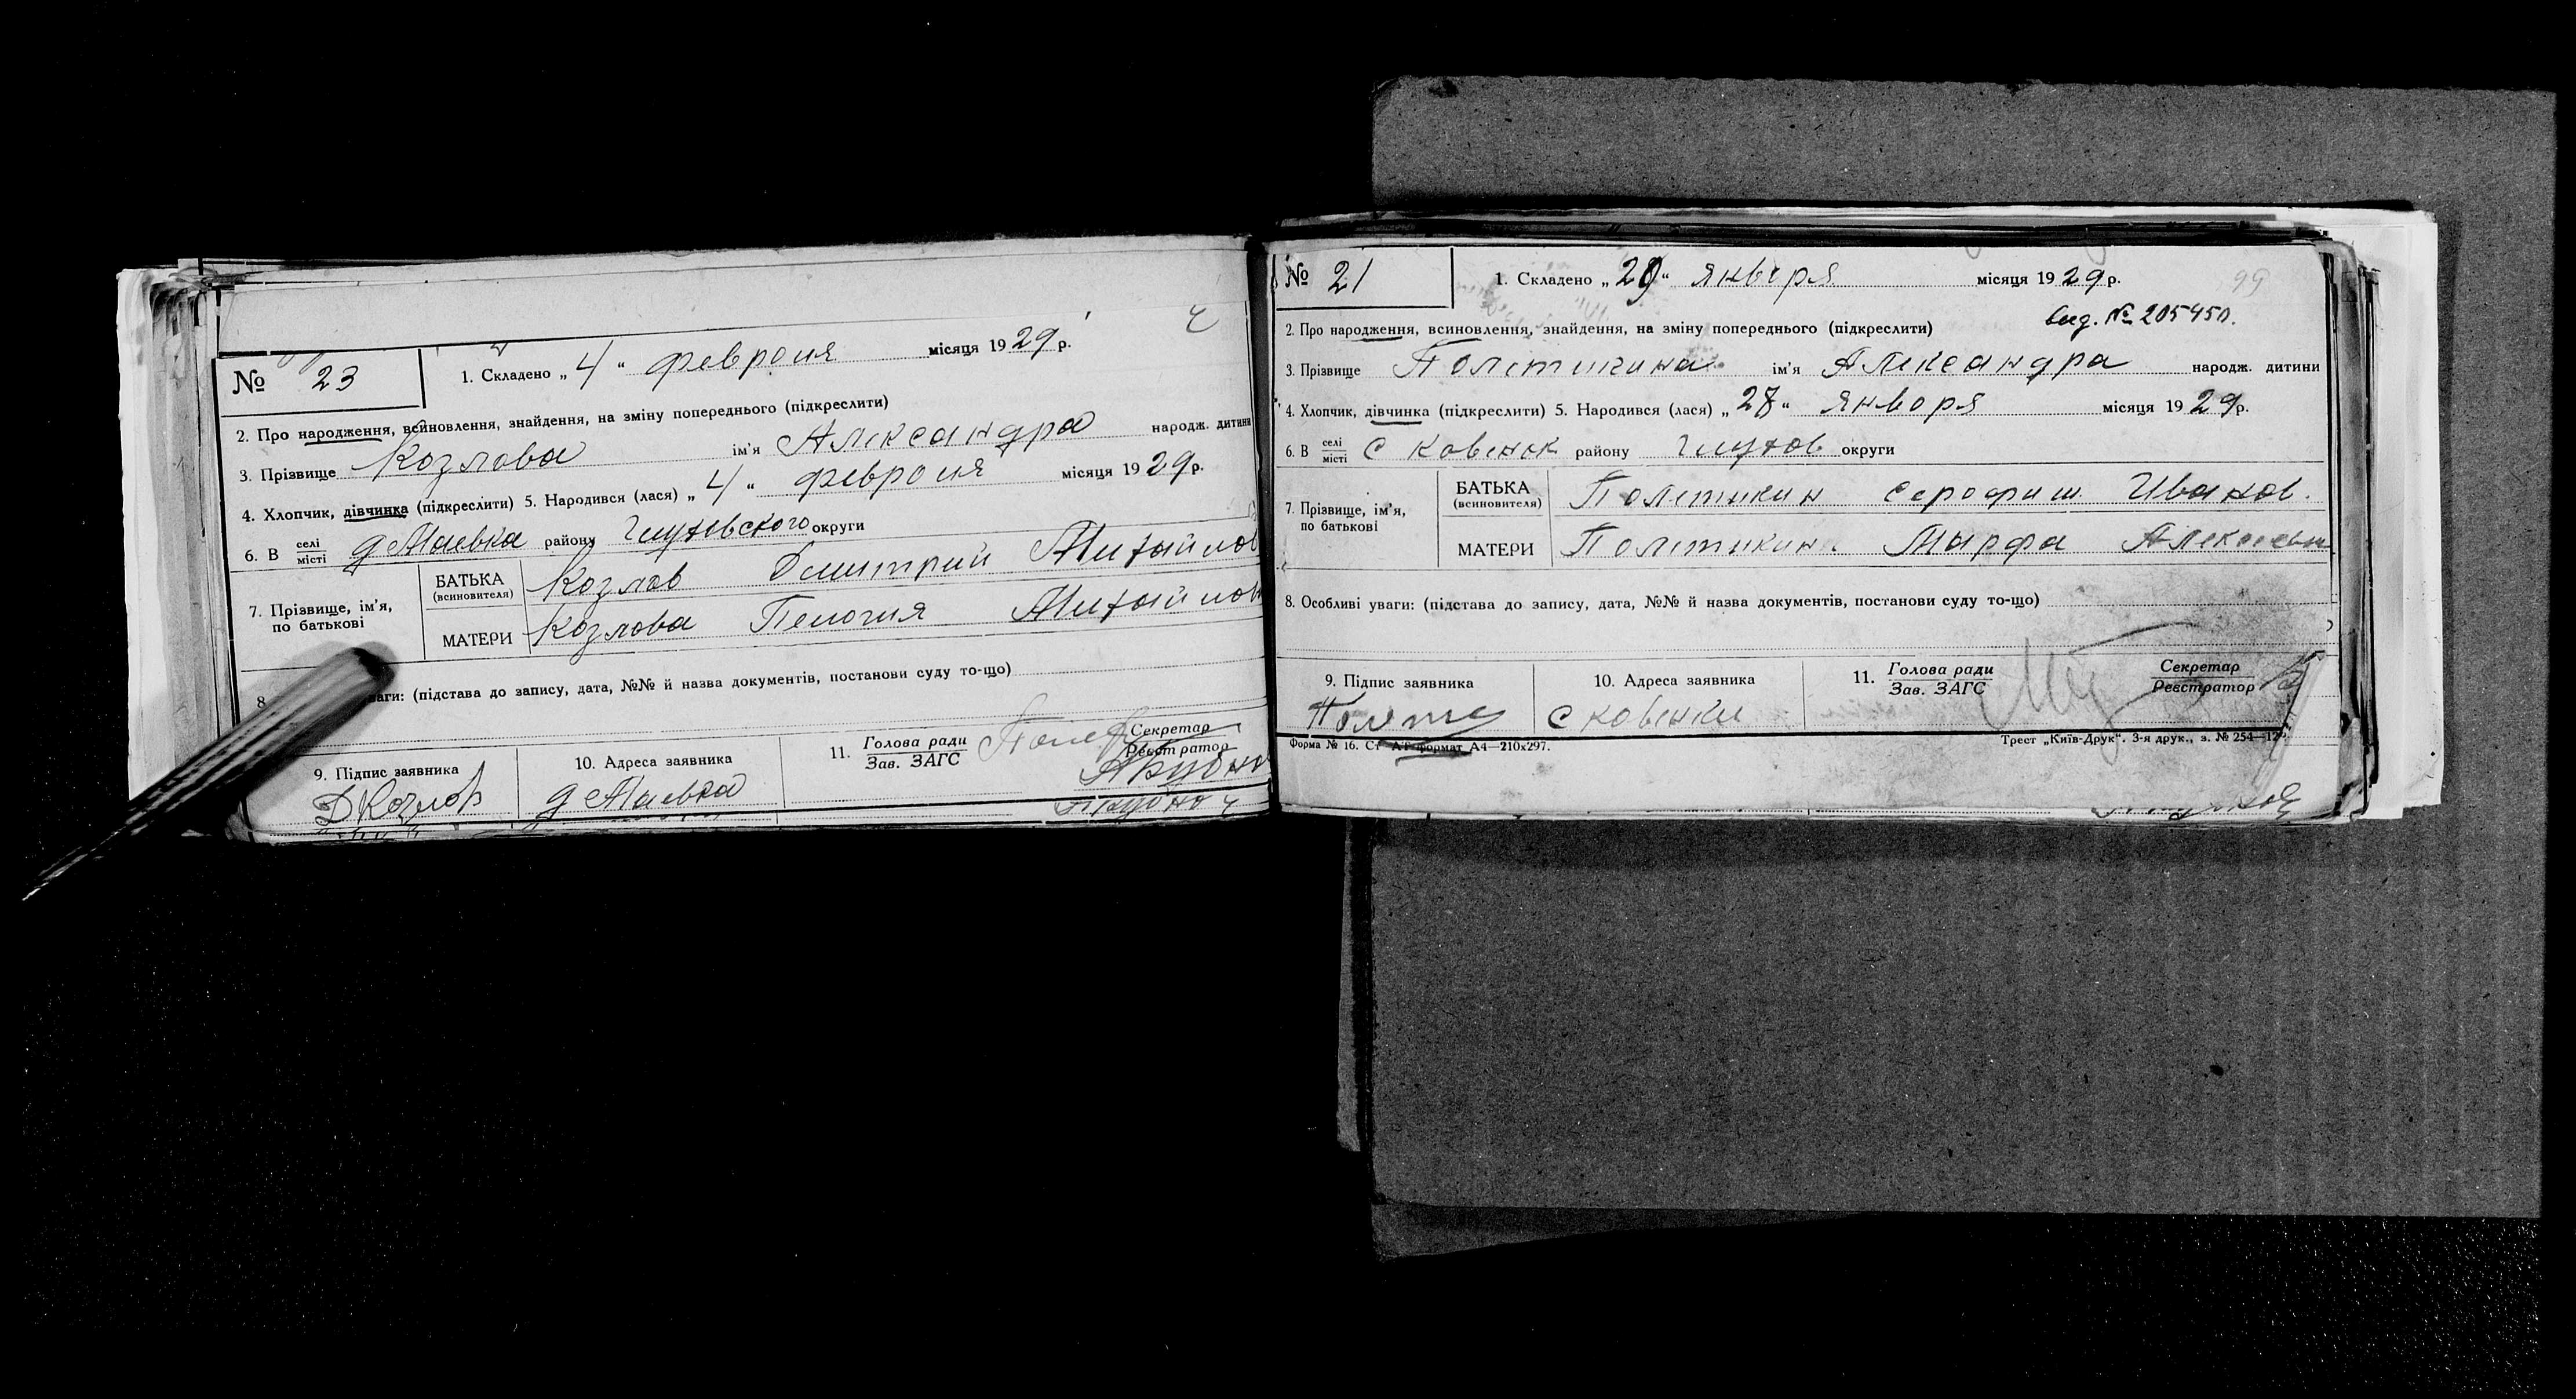 № 23
1. Складено „ 4 “ февраля місяця 1929 р.
2. Про народження, всиновлення, знайдення, на зміну попереднього (підкреслити)
3. Прізвище Козлова ім'я Александра народж. дитини
4. Хлопчик, дівчинка (підкреслити) 5. Народився (лася) „ 4 “ февраля місяця 1929 р.
6. В селі місті д Маевка району Глуховского округи
7. Прізвище, ім'я, по батькові
БАТЬКА (всиновителя) Козлов Дмитрий Михайлов
МАТЕРИ Козлова Пелогия Михайлов
8. ваги: (підстава до запису, дата, №№ й назва документів, постанови суду то-що)
9. Підпис заявника 10. Адреса заявника 11. Голова ради Зав. ЗАГС Секретар Реєстратор
ДКозлов д Маевка
№ 21
1. Складено „ 29 “ января місяця 1929 р.
99
вид. № 205450.
2. Про народження, всиновлення, знайдення, на зміну попереднього (підкреслити)
3. Прізвище Полетикина ім'я Александра народж. дитини
4. Хлопчик, дівчинка (підкреслити) 5. Народився (лася) „ 28 “ января місяця 1929 р.
6. В селі місті с Ковенок району Глухов округи
7. Прізвище, ім'я, по батькові
БАТЬКА (всиновителя) Полетикин Серафим Иванов.
МАТЕРИ Полетикин. Марфа Алексеевн
8. Особливі уваги: (підстава до запису, дата, №№ й назва документів, постанови суду то-що)
9. Підпис заявника 10. Адреса заявника 11. Голова ради Зав. ЗАГС Секретар Реєстратор
с ковенки
Форма № 16. Ст АТ формат А4—210х297. Трест „Київ-Друк“. 3-я друк., з. № 254—12